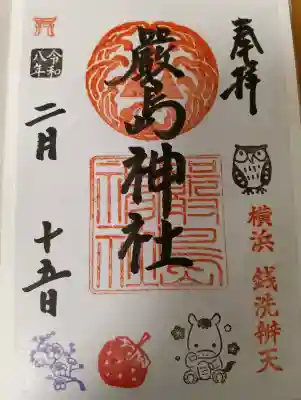 奉拝
横浜 銭洗辨天
嚴島神社
令和
八年
二月
十五日